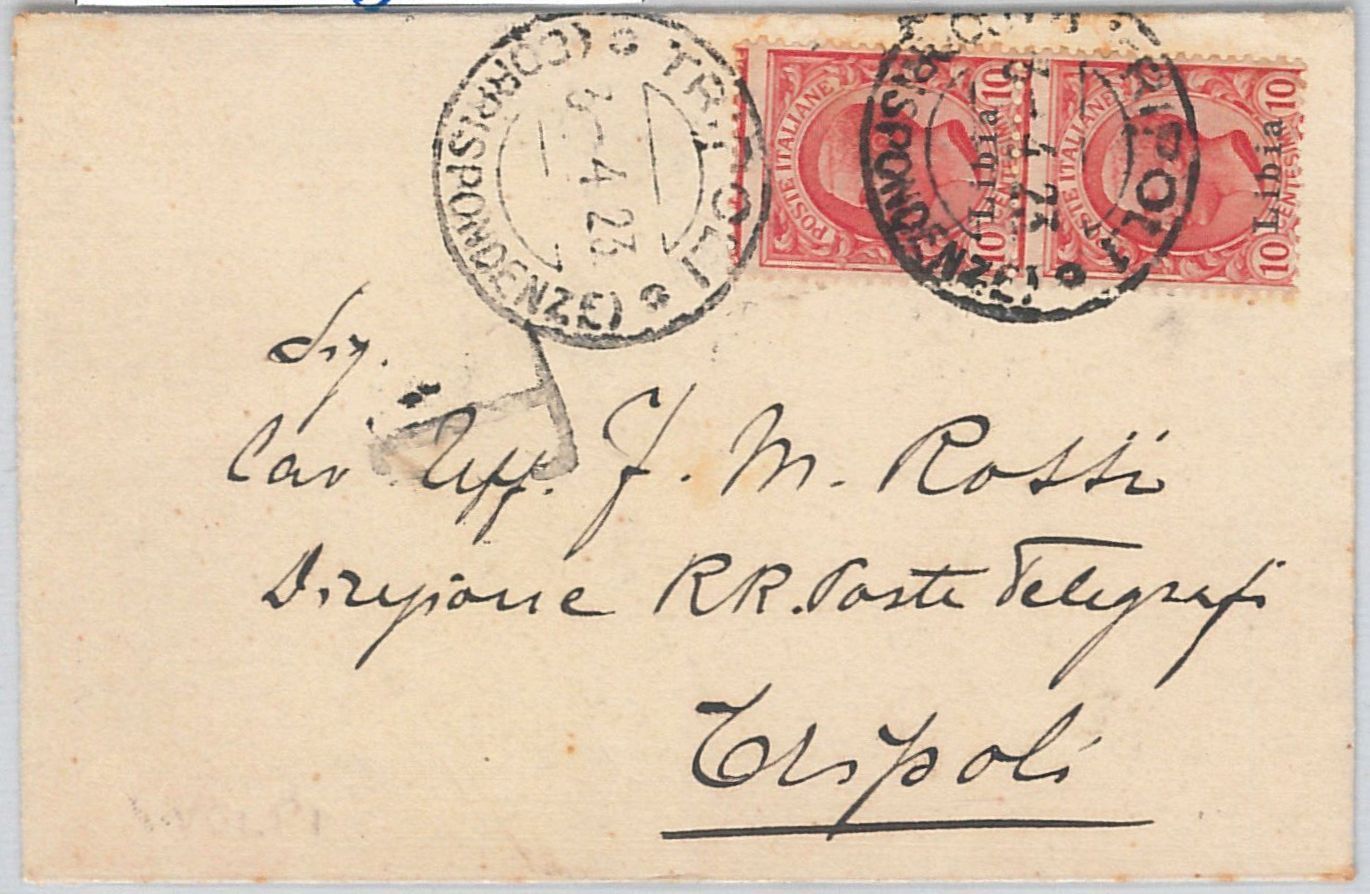 TRIPOLI
(CORRISPONDENZE)
3-4 23
POSTE ITALIANE
10 CENTESIMI 10
Libia
TRIPOLI
(CORRISPONDENZE)
4 23
POSTE ITALIANE
10 CENTESIMI 10
Libia
T
Sig.
Cav Uff. J. M. Rossi
Direzione RR. Poste Telegrafi
Tripoli